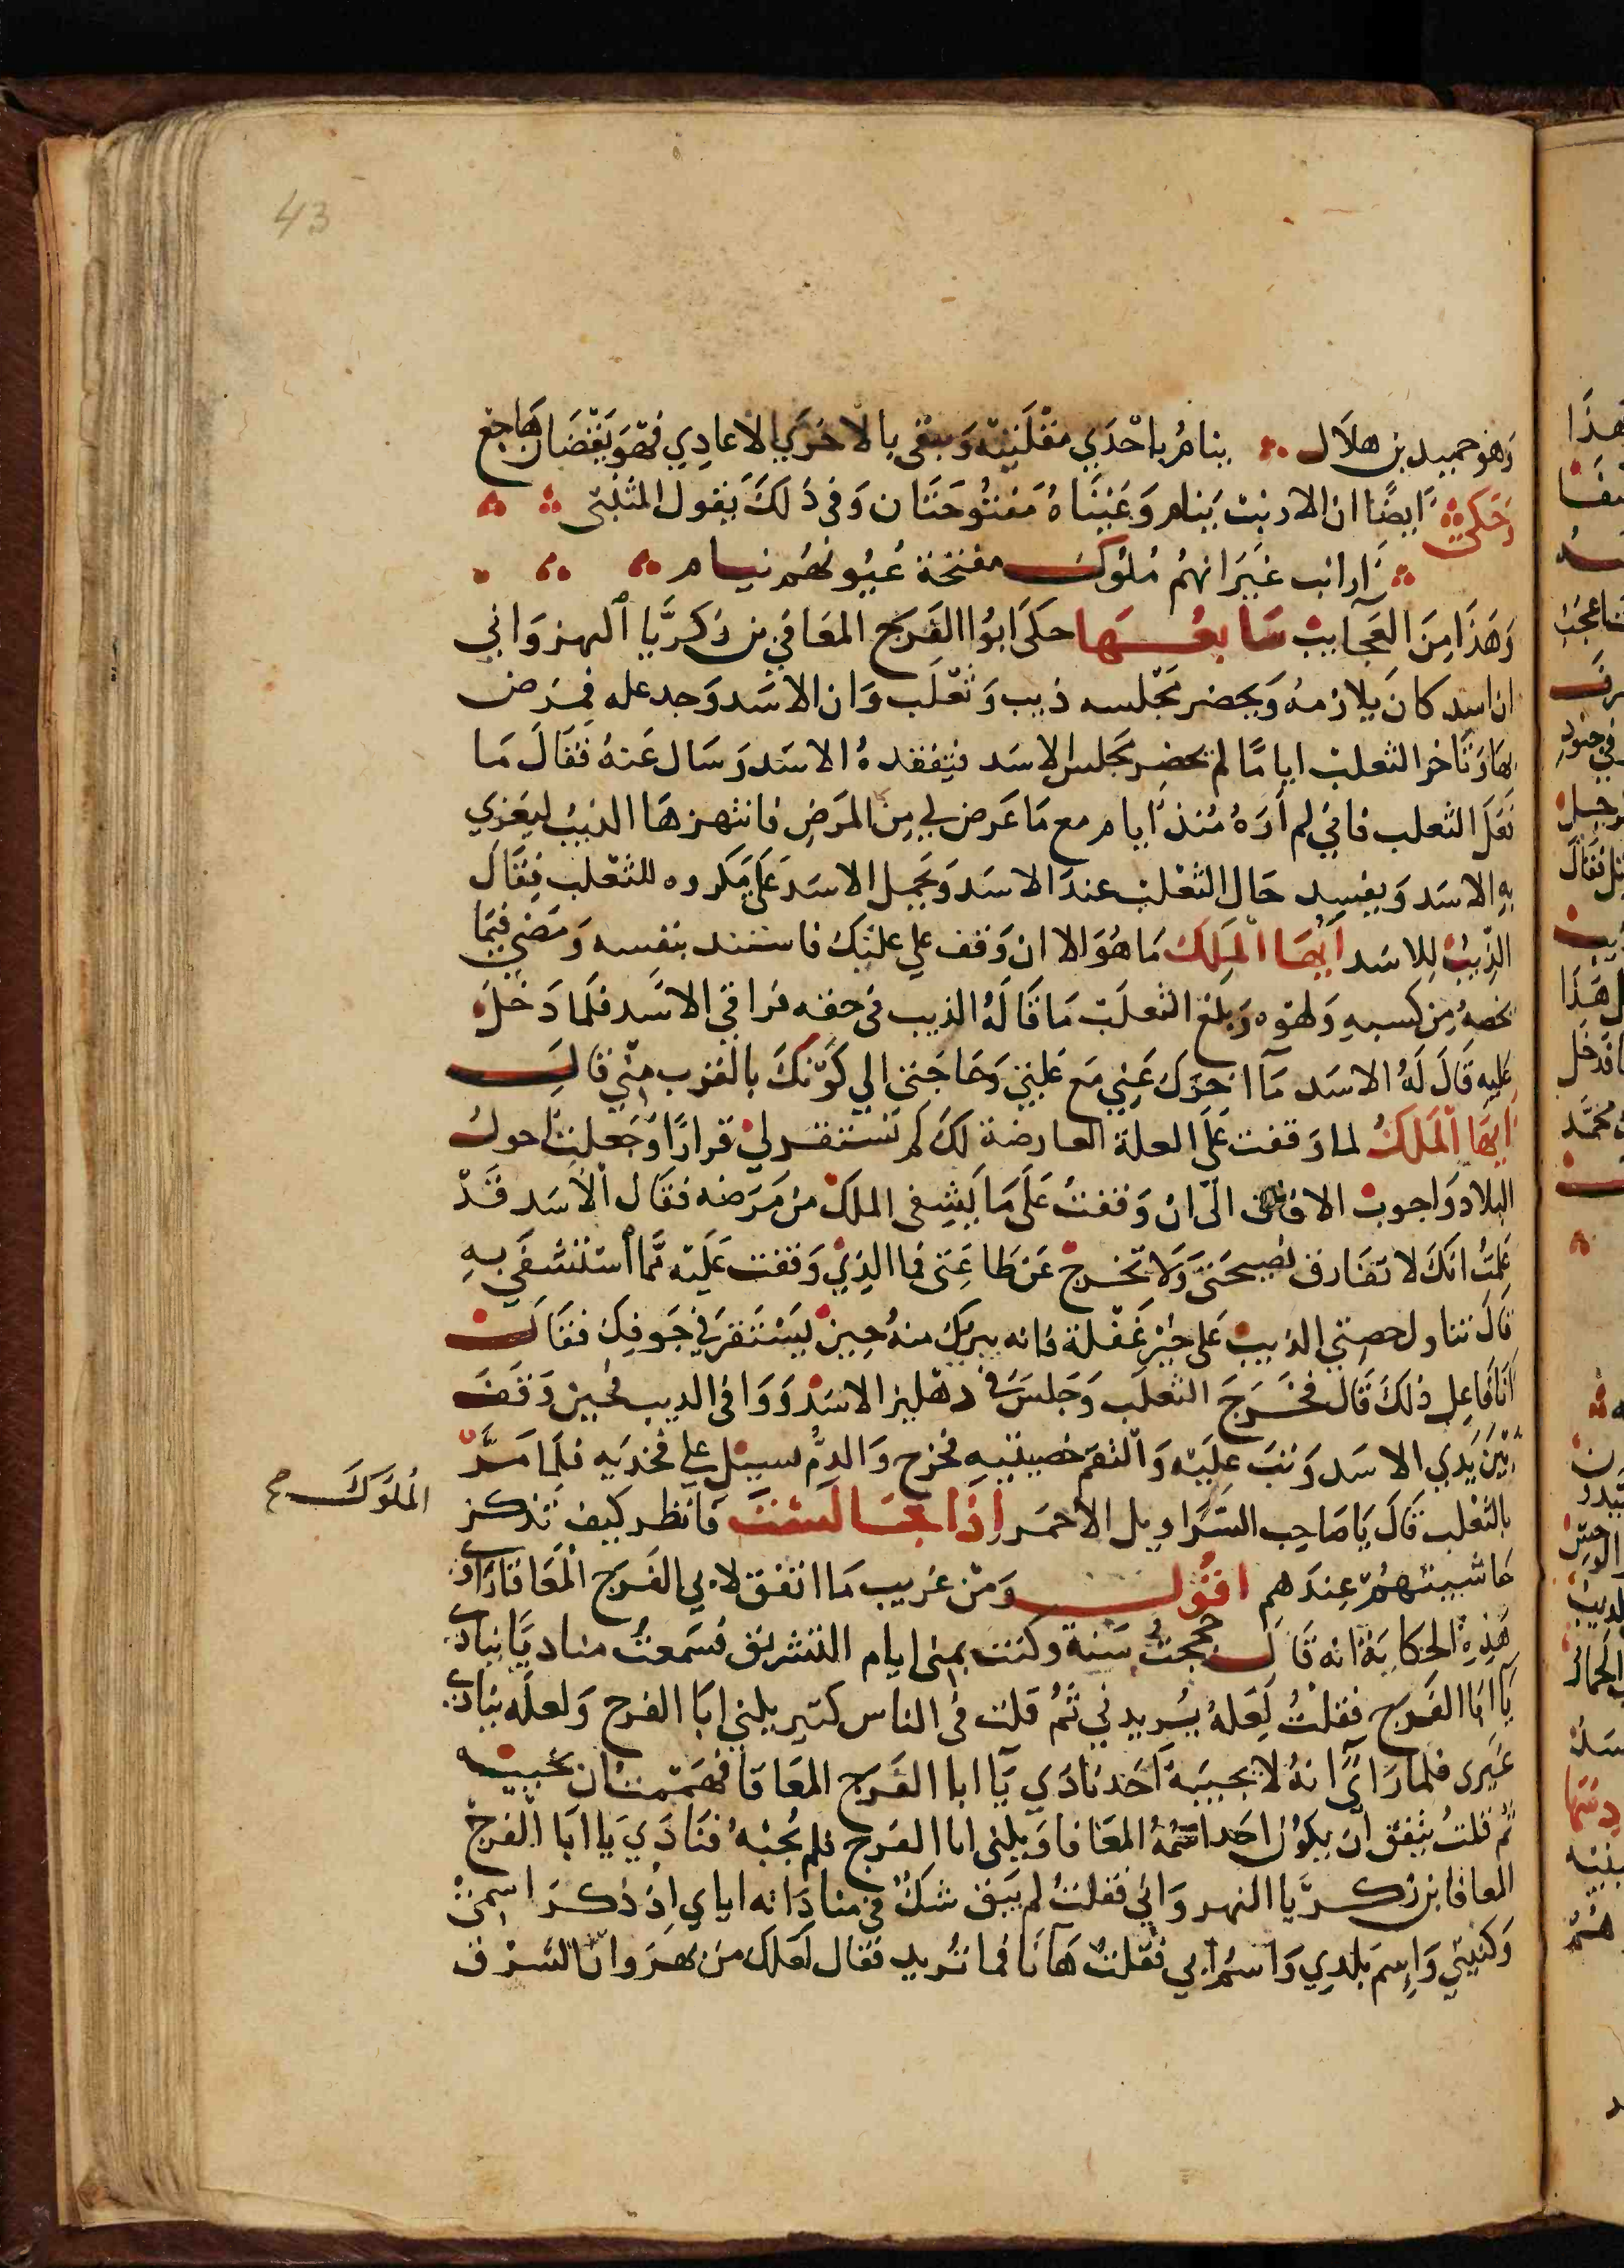 43
وَهوَ حميد بن هلاَل ينامُ باحْدَي مقْلَتيْه وَيبْقى بالاخرَي الاعادِي فهوَ يَقْضَان هَاجع
وَحَكيَ اَيضًا ان الارنبْ يَنام وَعَيْنَاهُ مَفتُوحَتَان وَفي ذَلكَ يَقول المتْنبّى
اَرانب غَيرَ انهمُ مُلوُك مفتحَة عُيُونهُم نيام
وَهَذَا مِنَ العَجَايبْ سَابعُهَا حكىَ ابوُا الفَرَج المعَافي بن زكرَيَّا النهروَاني
ان اسد كانَ يلازمهُ وَيحضر مَجْلسه ذيب وَثعْلَب وَان الاسَد وَجد عله فمرَض
بهَا وَتَاخرَ الثعلبْ ايامًا لم يحضر مَجلس الاسَد فتفقدهُ الاسَد وَسَال عَنهُ فقَالَ مَا
فعَلَ الثعلب فاني لم اَرَهُ مُنذ اَيام مع مَا عَرض لي مِن المَرَض فانتهزهَا الذيبُ ليَغري
بهِ الاسَد وَيفسِد حَال الثعْلبْ عندَ الاسَد وَيَحمِل الاسَد عَلَى مَكروه للثعْلب فقَالَ
الذِيبْ لِلاسَد اَيُّهَا الْمَلِكُ مَا هُوَ الا ان وَقف علي علتكَ فاستبد بنفسه وَمَضى فيمَا
يخصهُ مِن كسبهِ وَلهوْه وَبلغ الثعلَبْ مَا قَالهُ الذيب في حقه فرافي الاسَد فلَما دَخلَ
عَليهِ قَالَ لَهُ الاسَد مَا اخرَك عَنِي مَع عِلتي وَحَاجَتي الي كوَنكَ بالقرب مِني قالَ
اَيهَا الْمَلكُ لما وَقفت عَلى العلة العارضة لكَ لم تَسْتقر ليْ قرارًا وَجَعلتُ اجول
البلاد وَاجوب الافاق الىَ ان وَقفتُ عَلَى مَا يَشفى الملكْ من مَرَضه فقَال الاَسَد قَدْ
عَلمتُ انكَ لا تفَارق نصيحَتىَ وَلاَ تخرج عَن طاعَتى فما الذِيْ وَقفت عَليْه مَّما اسْتشفَي بهِ
قالَ تناول خصيتي الذيبْ عَلى حيْن غَفْلة فانه يبريكَ منهُ حِينْ يَسْتَقرَ في جَوفكَ فقَالَ
اَنَا فَاعل ذلكَ قَالَ فخَرَجَ الثعلَب وَجَلسَ في دهْليز الاسَدْ وَوَافى الديب فحين وَقفَ
بَيْنَ يَدي الاسَد وَثبَ عليَه وَالتقمَ خصيتيهِ فخرج وَالدمُّ يسيل علي فخديه فلَما مَرَّ
بالثعْلب قَالَ يَا صَاحِب السَّرَاويل الاحْمَر اِذَا جَالَسْتَ فَانظر كيف تذكر
الملَوكَ صح
حَاشيتهُمْ عِندَهم اقوُل وَمنْ غرِيب مَا اتفق لابي الفَرَج الْمَعَافا رَاو
هَذِهِ الحكايَة انه قَالَ حججتُ سَنة وكنت بمنى ايام التشريق فسَمعتُ منادِيًا ينادى
يَا ابَا الفَرَج فقلتُ لعَلهُ يُريدني ثمُ قلت في الناس كثير يلني ابَا الفرج وَلعلهُ ينادى
غَيرى فلمَا رَاىَ انهُ لا يجيبهَ اَحَد نادَي يَا ابا الفَرَج المعَافا فهَممت ان اجيبه
ثم قلتُ يتفق اَن يكوُن احَد اسْمُهُ المعَافا وَيلنى ابا الفَرج فلم اُجبْهُ فنَادَي يَا ابَا الفَرجْ
المعَافا بن زكريَّا النهروَاني فقلتُ لم يَبق شكُ في منادَاته ايَاي اِذْ ذَكرَ اسمىْ
وَكنيتي وَاِسمَ بلدِي وَاسمُ ابي فقلتُ هَا اَنا فما تُريد فقَال لَعَلكَ من نهرَوان الشرْق